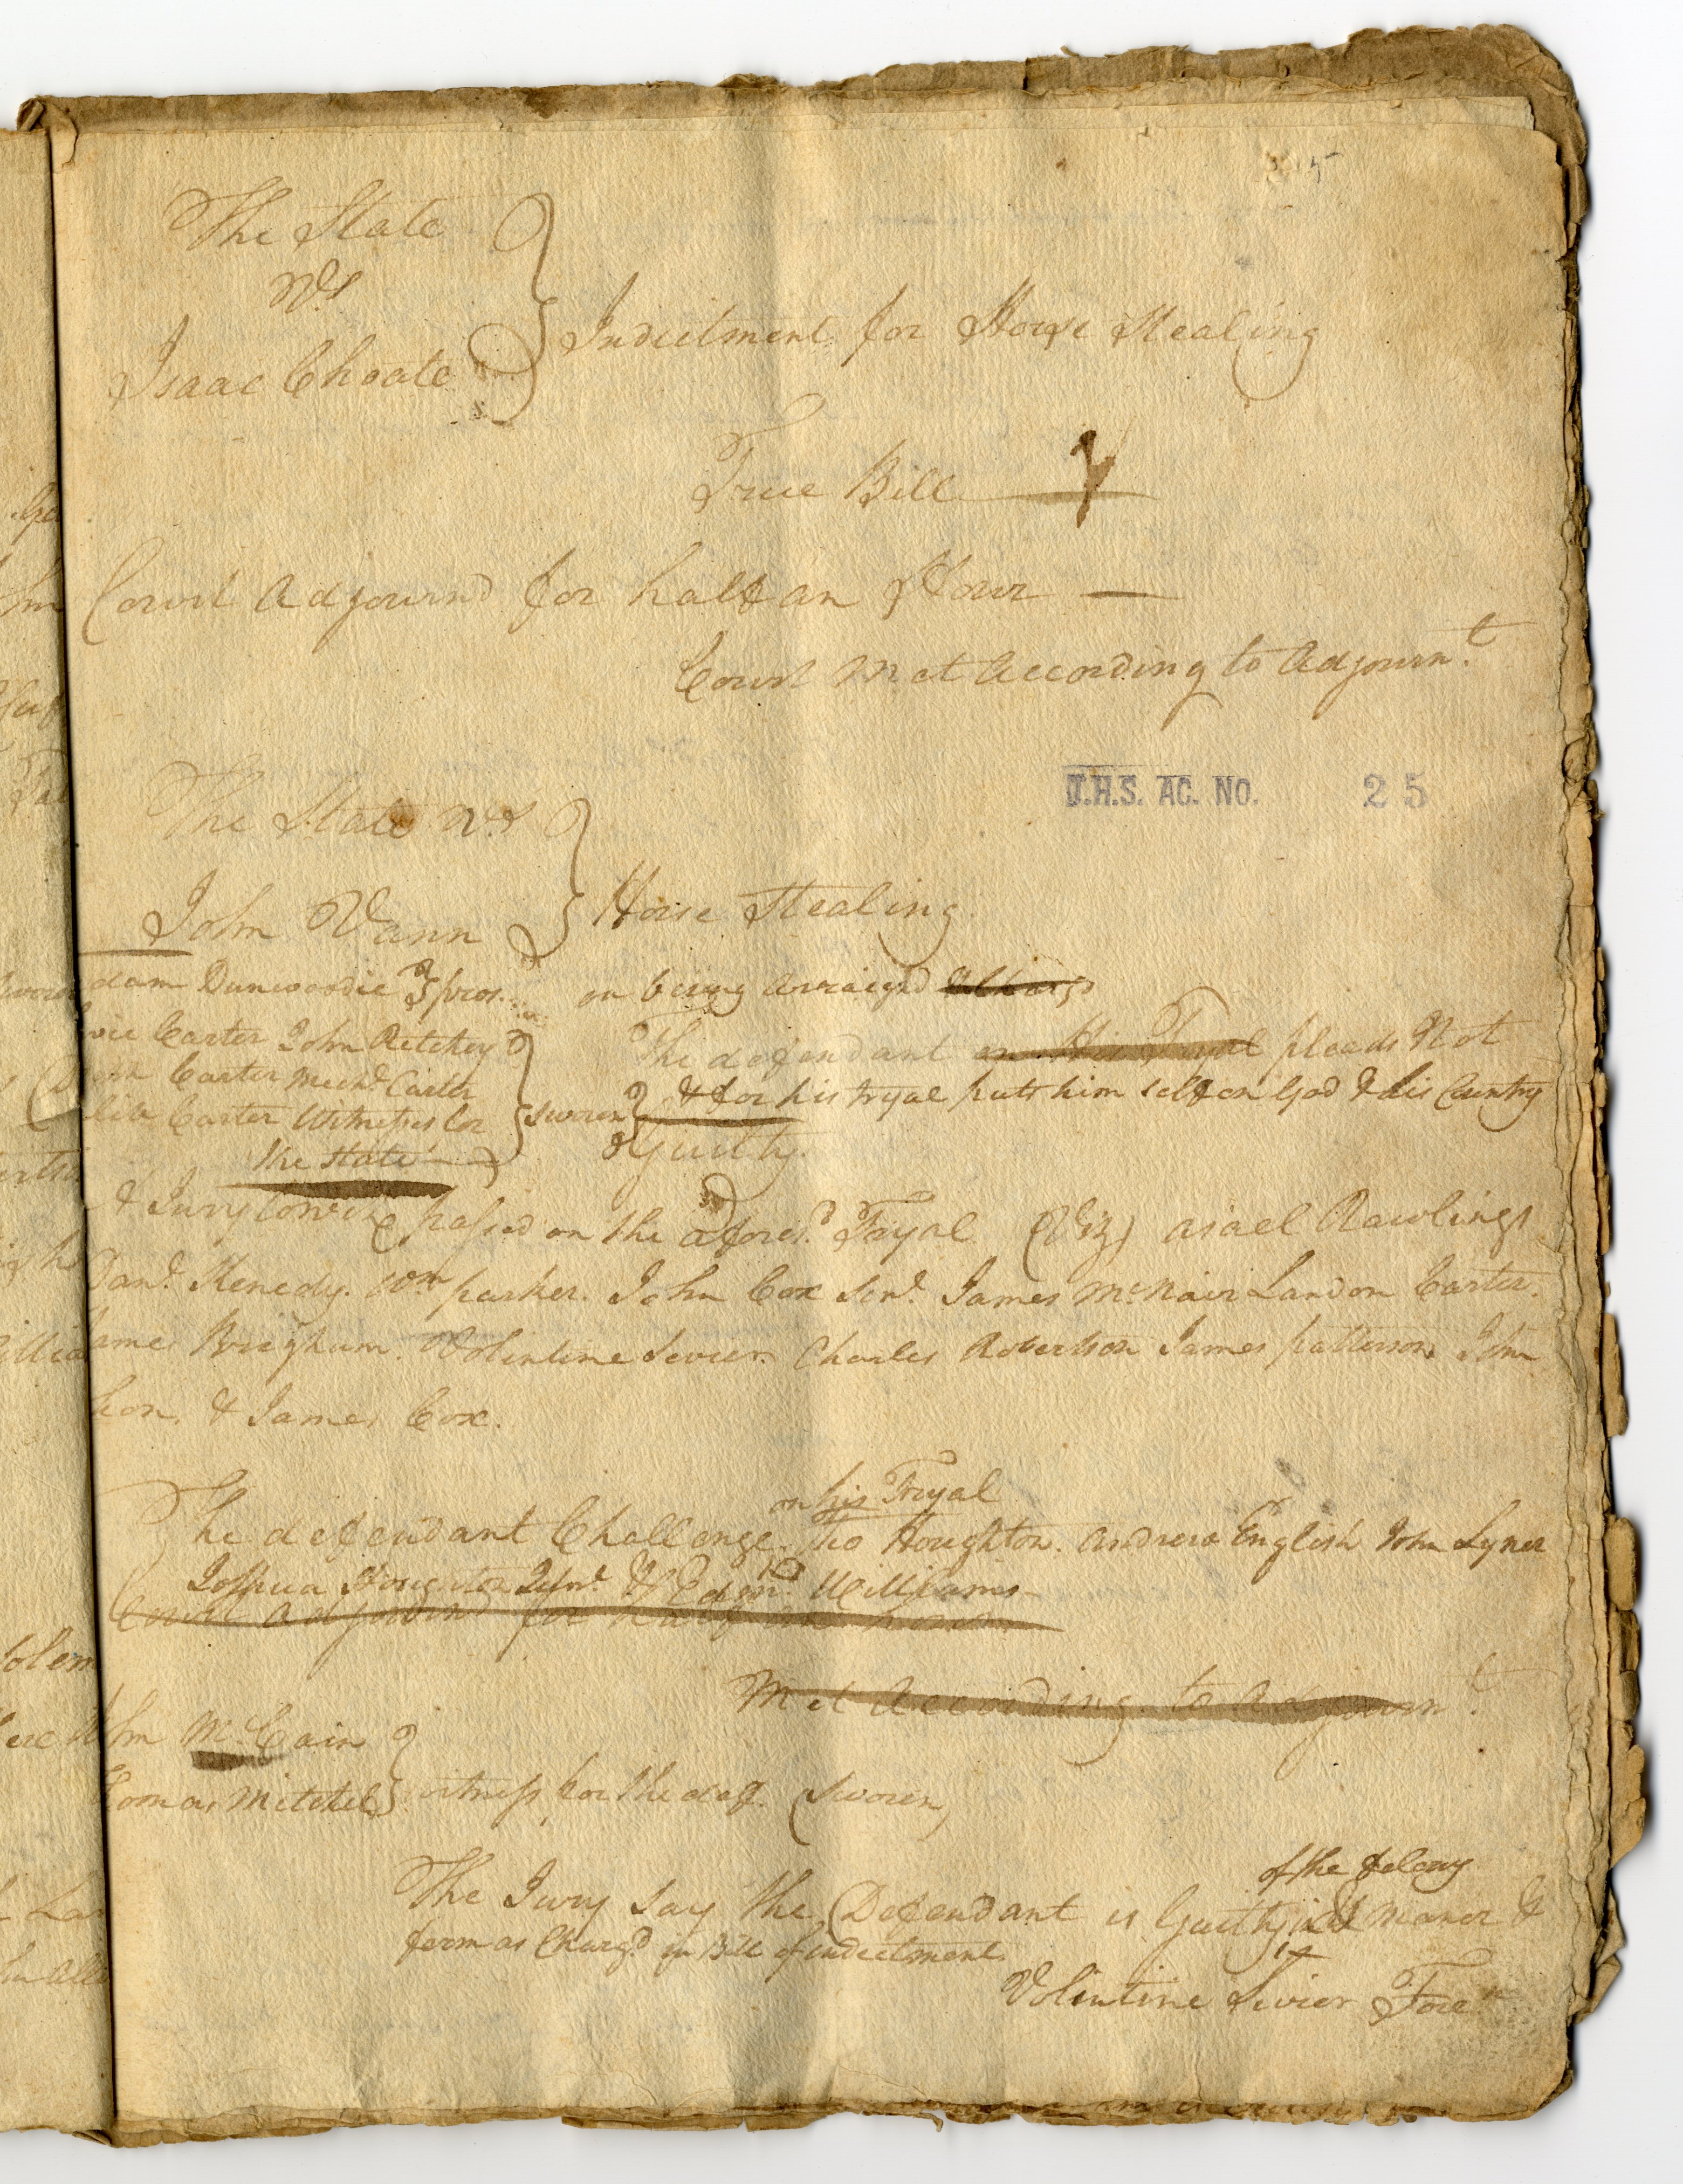 The State
Vs
Isaac Choate
Indictment for Horse Stealing
True Bill
Court Adjournd for half an Hour —
Court Met According to Adjourn.t
T.H.S. AC. NO. 25
The State Vs
John Vann
Horse Stealing
dam Dunwoodie pros.
on being Arraignd
vie Carter John Ritchey
The defendant on His Tryal pleads Not
Carter Mich.l Carter
& for his tryal puts him self on God & his Country
Carter Witnesses for
sworen
Guilty.
the state
& Jury passed on the afores.d Tryal (Viz) asael Rawlings
Dan.l Kenedy. Wm parker. John Cox Sen.r James McNair Landon Carter.
James Brigham. Volintine Sevier. Charles Robertson James patterson John
& James Cox.
on his Tryal
The defendant Challenge. Tho Houghton. Andrew English John Lyner
Joshua Houghton Jun.r & Edm.d Williams —
Court adjournd for half an hour
Met According to Adjourn.t
John McCain
Thomas Mitchel
witness for the def. (sworen)
of the felony
The Jury say the Defendant is Guilty in Maner &
form as Charg.d in Bill of indictment
Volintine Sevier Fore.n